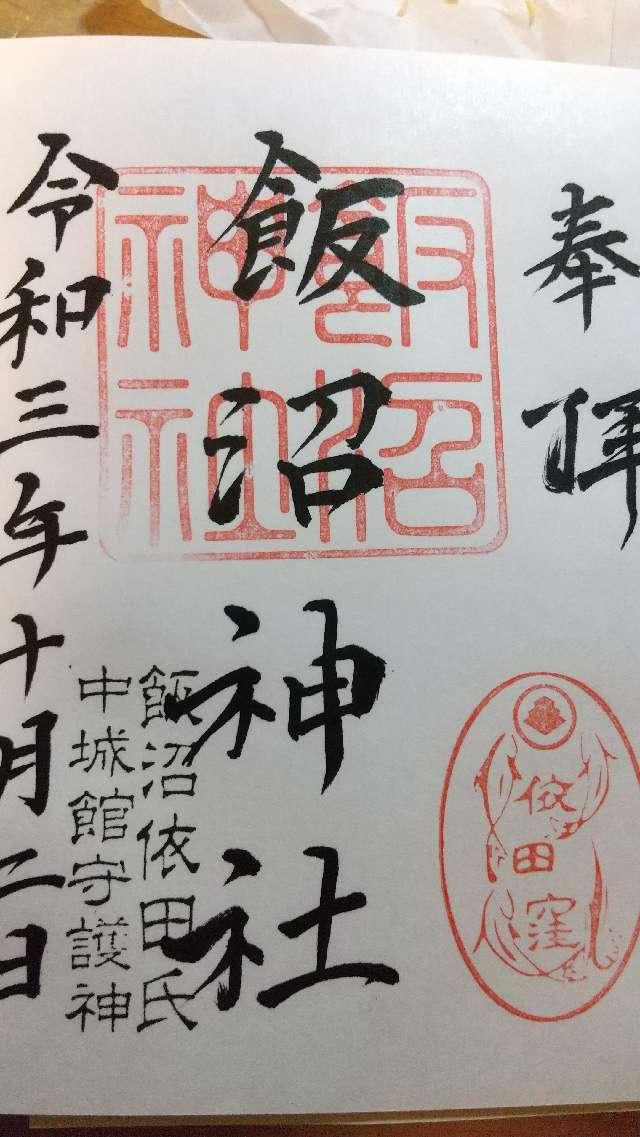 奉拝
依田窪
飯沼神社
飯沼神社
飯沼依田氏
中城館守護神
令和三年十月二日